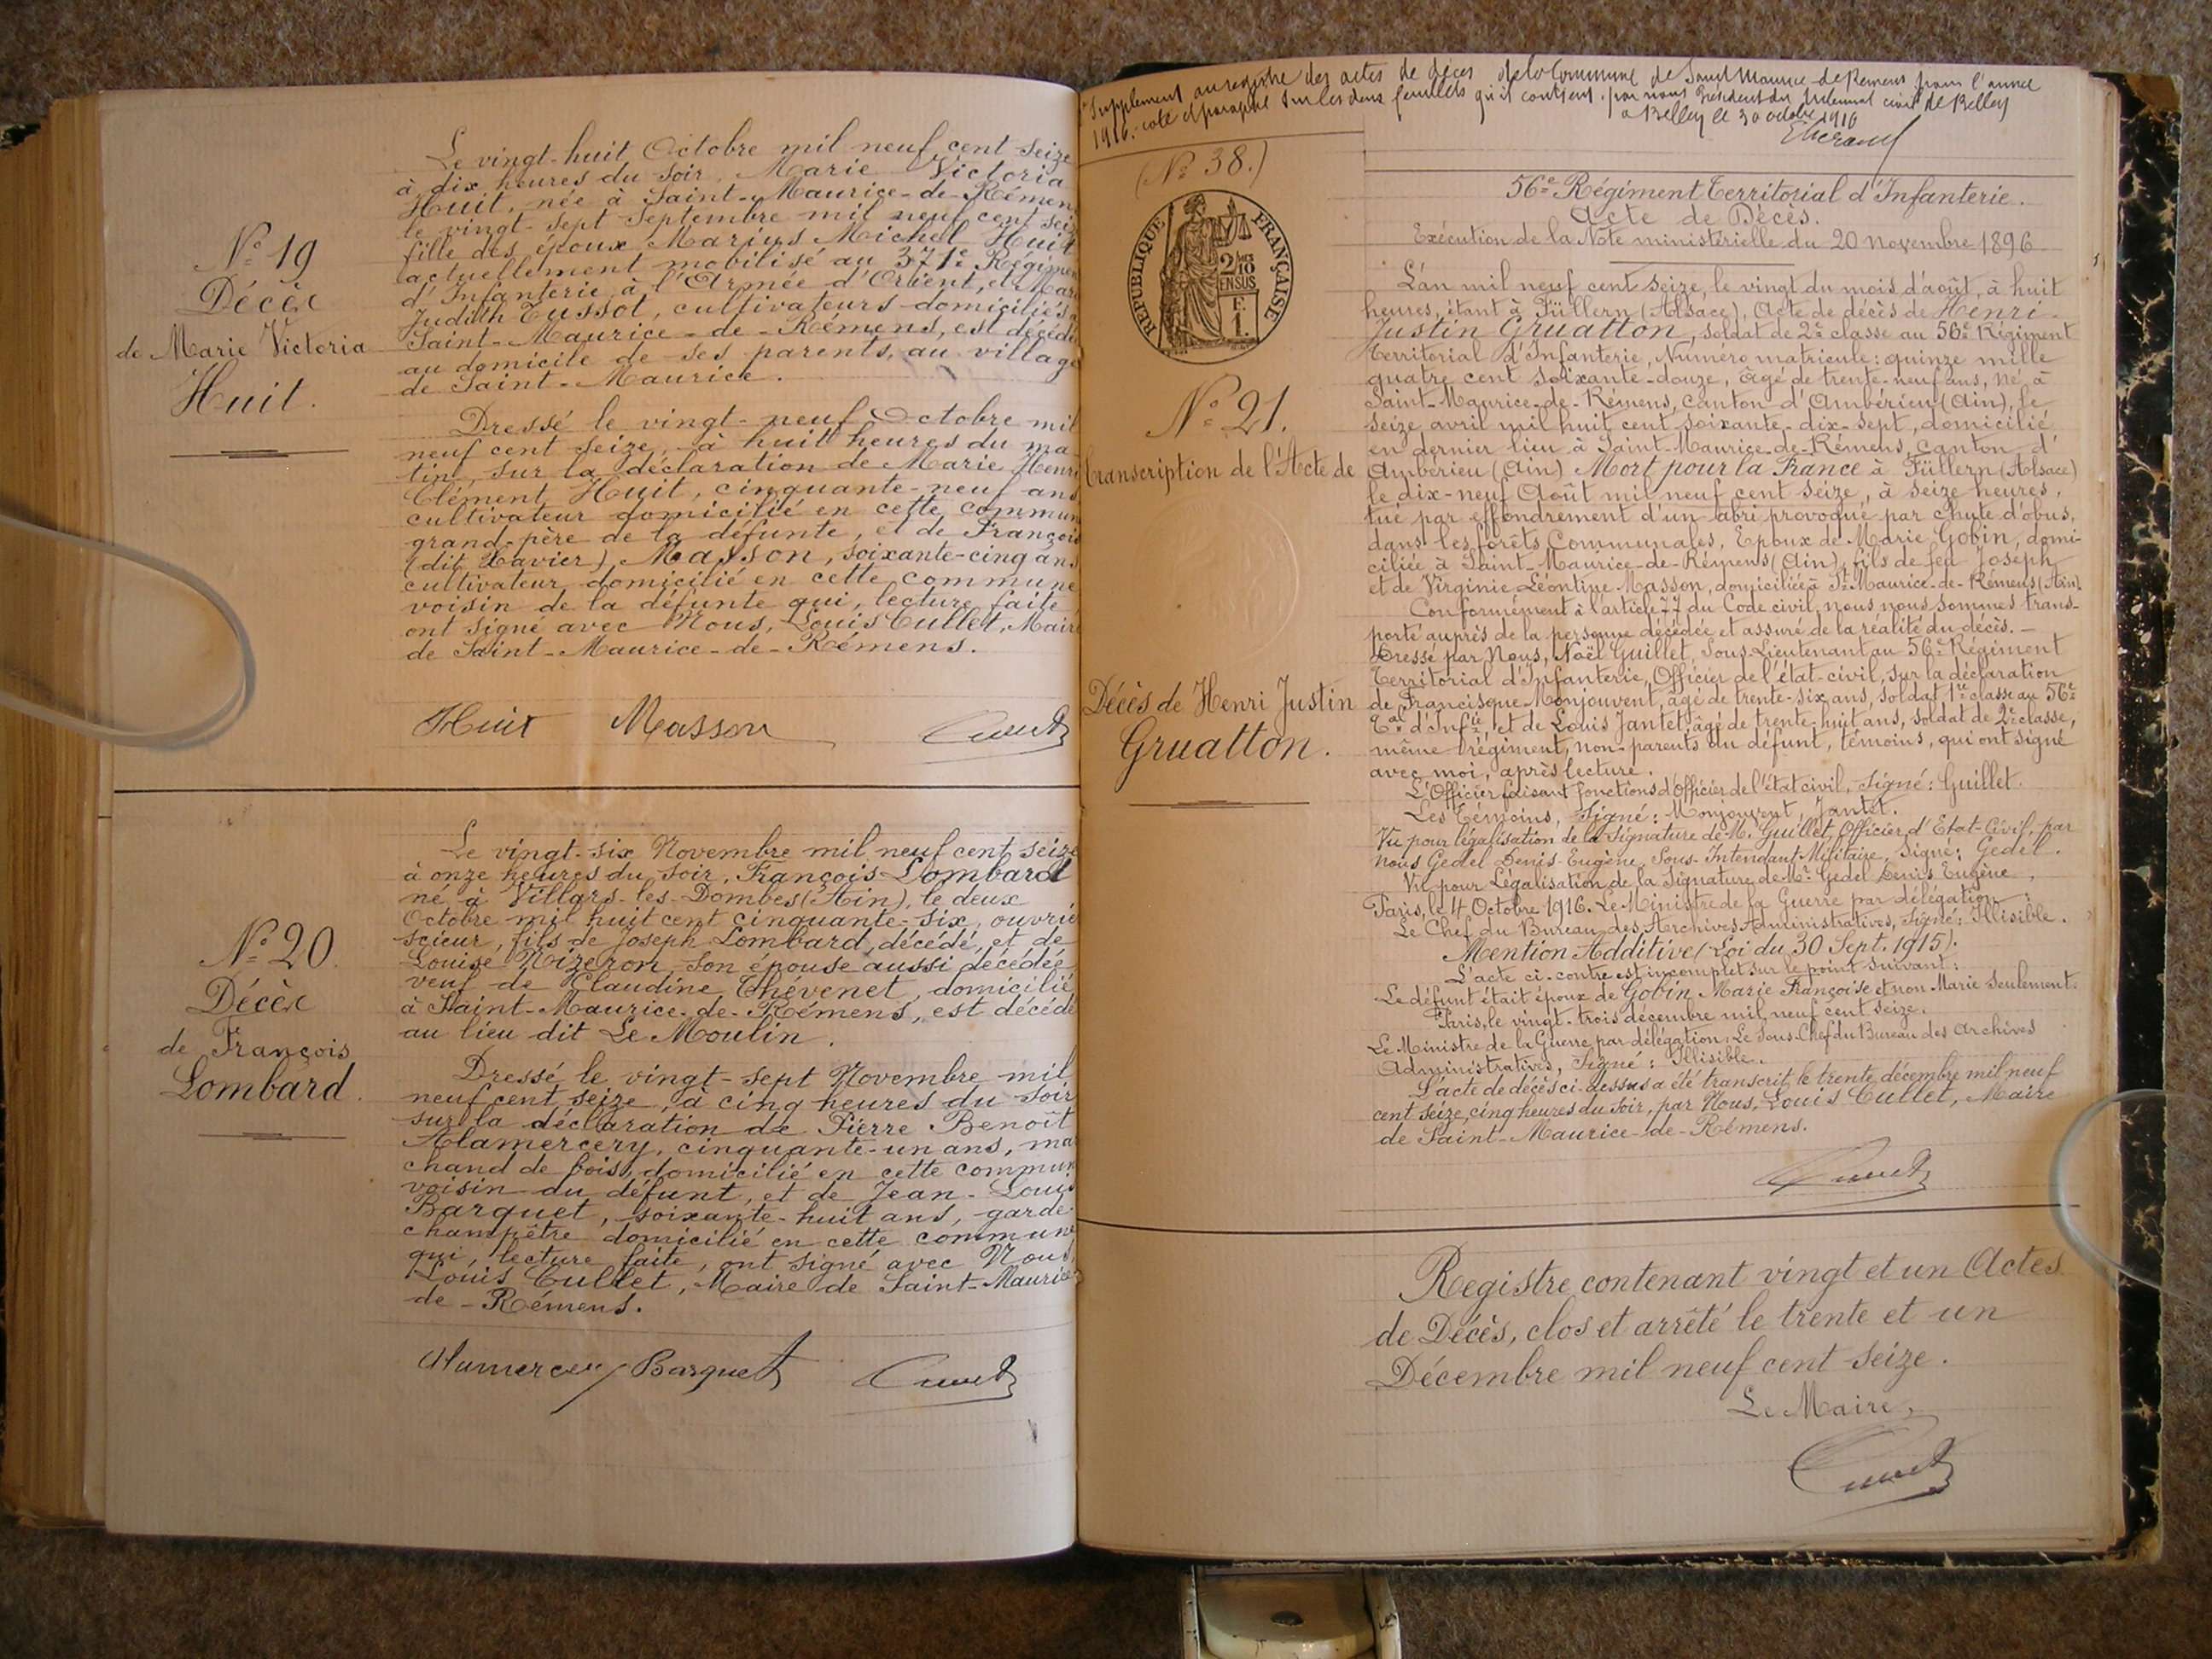 Le vingt-huit Octobre mil neuf cent seize
à dix heures du soir, Marie Victoria
Huit, née à Saint-Maurice-de-Rémens
le vingt-sept Septembre mil neuf cent seiz
fille des époux Marius Michel Huit
actuellement mobilisé au 371e Régimen
d'Infanterie à l'Armée d'Orient, et Mari
Judith Tussot, cultivateurs domiciliés à
Saint-Maurice-de-Rémens, est décédé
au domicile de ses parents, au village
de Saint-Maurice.
No 19
Décès
de Marie Victoria
Huit.
Dressé le vingt-neuf Octobre mil
neuf cent seize, à huit heures du ma
tin, sur la déclaration de Marie Henri
Clément Huit, cinquante-neuf ans
cultivateur domicilié en cette commun
grand-père de la défunte, et de François
(dit Xavier) Masson, soixante-cinq ans
cultivateur domicilié en cette commune
voisin de la défunte qui, lecture faite
ont signé avec Nous, Louis Cullet, Maire
de Saint-Maurice-de-Rémens.
Huit Masson Cullet
Le vingt-six Novembre mil neuf cent seize
à onze heures du soir, François Lombard
né à Villars-les-Dombes (Ain), le deux
Octobre mil huit cent cinquante-six, ouvrie
scieur, fils de Joseph Lombard, décédé, et de
Louise Mizeron, son épouse aussi décédée
veuf de Claudine Thévenet, domicilié
à Saint-Maurice-de-Rémens, est décédé
au lieu dit Le Moulin.
No 20.
Décès
de François
Lombard.
Dressé le vingt-sept Novembre mil
neuf cent seize, à cinq heures du soir
sur la déclaration de Pierre Benoît
Alamercery, cinquante-un ans, mar
chand de bois, domicilié en cette commun
voisin du défunt, et de Jean-Louis
Barquet, soixante-huit ans, garde
champêtre domicilié en cette commune
qui, lecture faite, ont signé avec Nous
Louis Cullet, Maire de Saint-Maurice
de-Rémens.
Alamercery Barquet Cullet
Supplément au registre des actes de décès de la Commune de Saint Maurice-de-Remens pour l'année
1916. coté et paraphé sur les deux feuillets qu'il contient, par nous Président du tribunal civil de Belley
à Belley le 30 octobre 1916
(No 38.)
RÉPUBLIQUE FRANÇAISE
2/10
EN SUS
F.
1.
No 21.
Transcription de l'Acte de
Décès de Henri Justin
Gruatton.
56e Régiment Territorial d'Infanterie.
Acte de Décès.
Exécution de la Note ministérielle du 20 novembre 1896
L'an mil neuf cent seize, le vingt du mois d'août, à huit
heures, étant à Füllern (Alsace), Acte de décès de Henri-
Justin Gruatton, soldat de 2e classe au 56e Régiment
Territorial d'Infanterie, Numéro matricule: quinze mille
quatre cent soixante-douze, âgé de trente-neuf ans, né à
Saint-Maurice-de-Rémens, Canton d'Ambérieu (Ain), le
seize avril mil huit cent soixante-dix-sept, domicilié
en dernier lieu à Saint-Maurice-de-Rémens, canton d'
Ambérieu (Ain) Mort pour la France à Füllern (Alsace)
le dix-neuf Août mil neuf cent seize, à seize heures,
tué par effondrement d'un abri provoqué par chute d'obus,
dans les forêts Communales, Epoux de Marie Gobin, domi-
ciliée à Saint-Maurice-de-Rémens (Ain), fils de feu Joseph
et de Virginie Léontine Masson, domiciliée à St-Maurice-de-Rémens (Ain).
Conformément à l'article 77 du Code civil, nous nous sommes trans-
porté auprès de la personne décédée et assuré de la réalité du décès. -
Dressé par Nous, Noël Guillet, Sous-Lieutenant au 56e Régiment
Territorial d'Infanterie, Officier de l'état-civil, sur la déclaration
de Francisque Monjouvent, âgé de trente-six ans, soldat 1re classe au 56e
Tal d'Infie, et de Louis Jantet, âgé de trente-huit ans, soldat de 2e classe,
même régiment, non-parents du défunt, témoins, qui ont signé
avec moi, après lecture.
L'Officier faisant fonctions d'Officier de l'état civil, Signé: Guillet.
Les Témoins, Signé: Monjouvent, Jantet.
Vu pour légalisation de la Signature de M. Guillet, Officier d'Etat-Civil, par
nous Gedel Denis Eugène, Sous-Intendant Militaire, Signé: Gedel.
Vu pour Légalisation de la Signature de Mr Gedel Denis Eugène,
Paris, le 4 Octobre 1916. Le Ministre de la Guerre par délégation
Le Chef du Bureau des Archives Administratives, Signé: Illisible.
Mention Additive (Loi du 30 Sept. 1915).
L'acte ci-contre est incomplet sur le point suivant:
Le défunt était époux de Gobin Marie Françoise et non Marie seulement.
Paris, le vingt-trois décembre mil neuf cent seize.
Le Ministre de la Guerre par délégation: Le Sous-Chef du Bureau des Archives
Administratives, Signé: Illisible.
L'acte de décès ci-dessus a été transcrit le trente décembre mil neuf
cent seize, cinq heures du soir, par Nous, Louis Cullet, Maire
de Saint-Maurice-de-Rémens.
Cullet
Registre contenant vingt et un Actes
de Décès, clos et arrêté le trente et un
Décembre mil neuf cent seize.
Le Maire,
Cullet